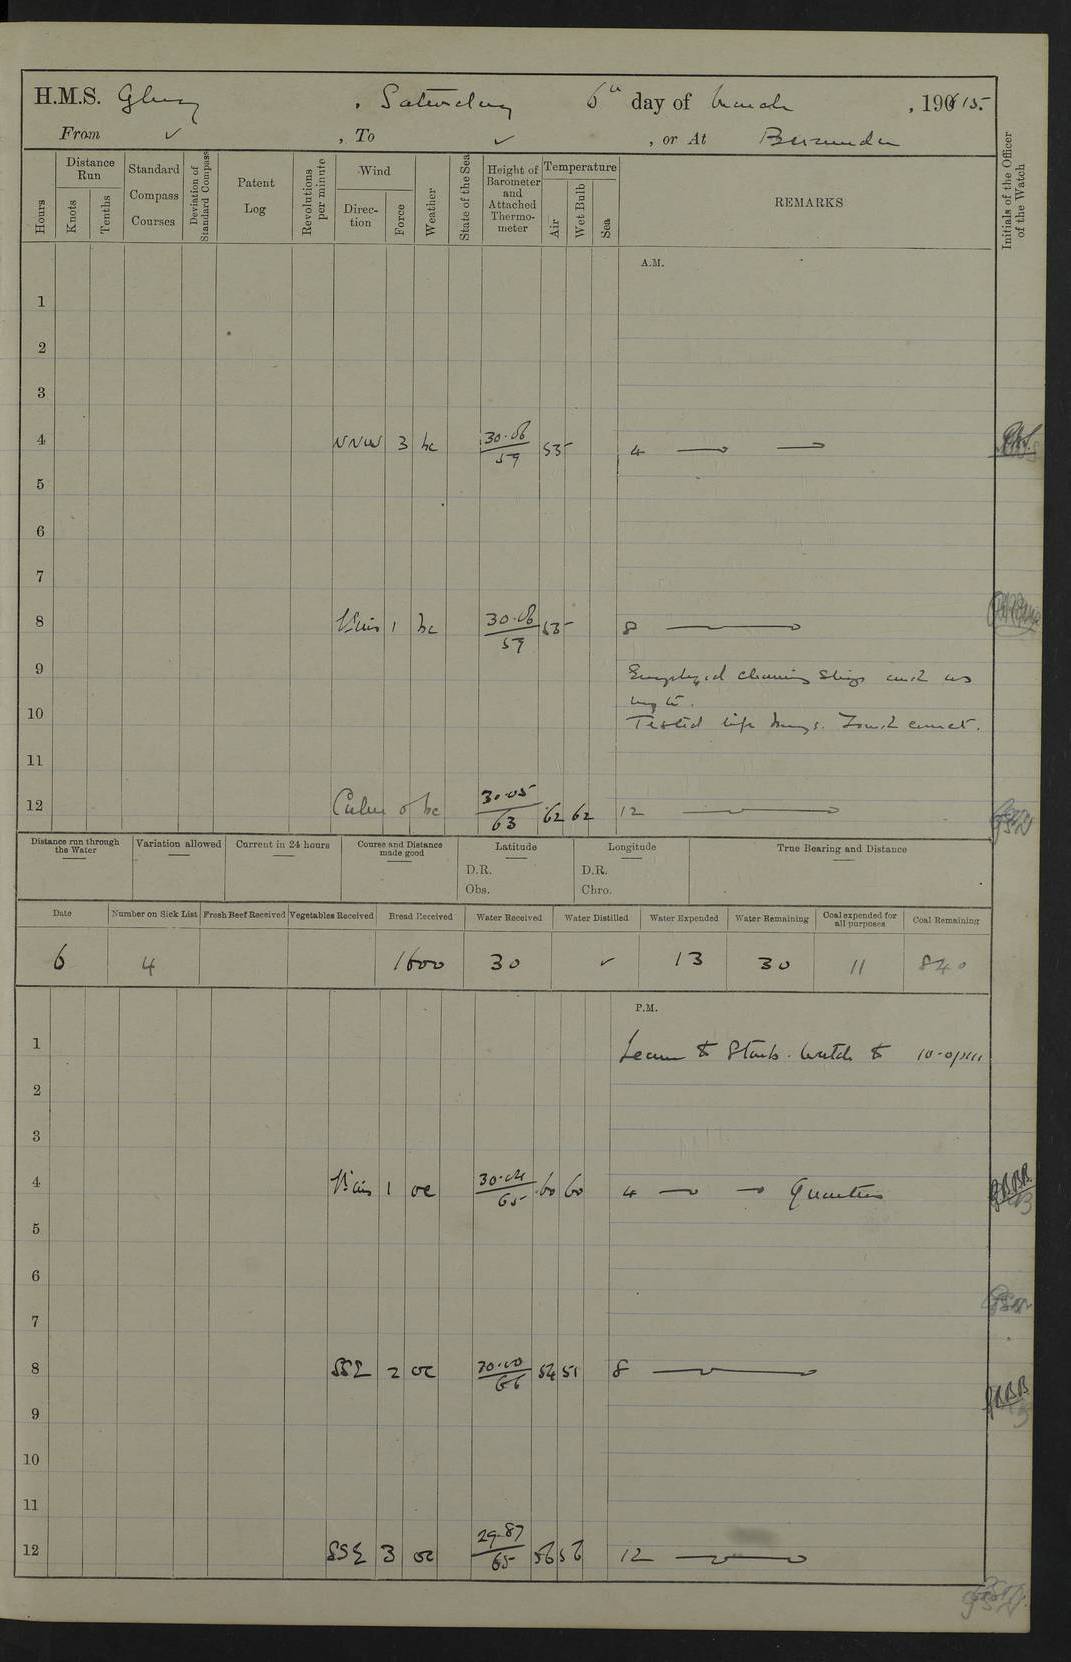 H.M.S. Glory , Saturday 6th day of March , 1915.
From ✓ , To ✓ , or At Bermuda
Hours
Distance Run
Knots
Tenths
Standard Compass Courses
Deviation of Standard Compass
Patent Log
Revolutions per minute
Wind
Direction
Force
Weather
State of the Sea
Height of Barometer and Attached Thermometer
Temperature
Air
Wet Bulb
Sea
REMARKS
Initials of the Officer of the Watch
A.M.
1
2
3
4 NNW 3 bc 30.06/59 53 4
5
6
7
8 1 bc 30.06/59 53 8
9 Employed cleaning Ship and as
10
Tested life buoys. Found correct.
11
12 Calm 0 bc 30.05/63 62 62 12
Distance run through the Water
Variation allowed
Current in 24 hours
Course and Distance made good
Latitude
D.R.
Obs.
Longitude
D.R.
Chro.
True Bearing and Distance
Date Number on Sick List Fresh Beef Received Vegetables Received Bread Received Water Received Water Distilled Water Expended Water Remaining Coal expended for all purposes Coal Remaining
6 4 1600 30 ✓ 13 30 11 840
P.M.
1 Leave to Starb. Watch to 10.0 pm
2
3
4 1 oc 30.04/65 60 60 4 Quarters
5
6
7
8 SSE 2 oc 30.00/66 54 51 8
9
10
11
12 SSE 3 oc 29.87/65 56 56 12